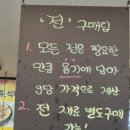 '전' 구매팁
1. 모든 전은 필요한
만큼 용기에 담아
g당 가격으로 계산
2. 전 재료 별도구매
가능!